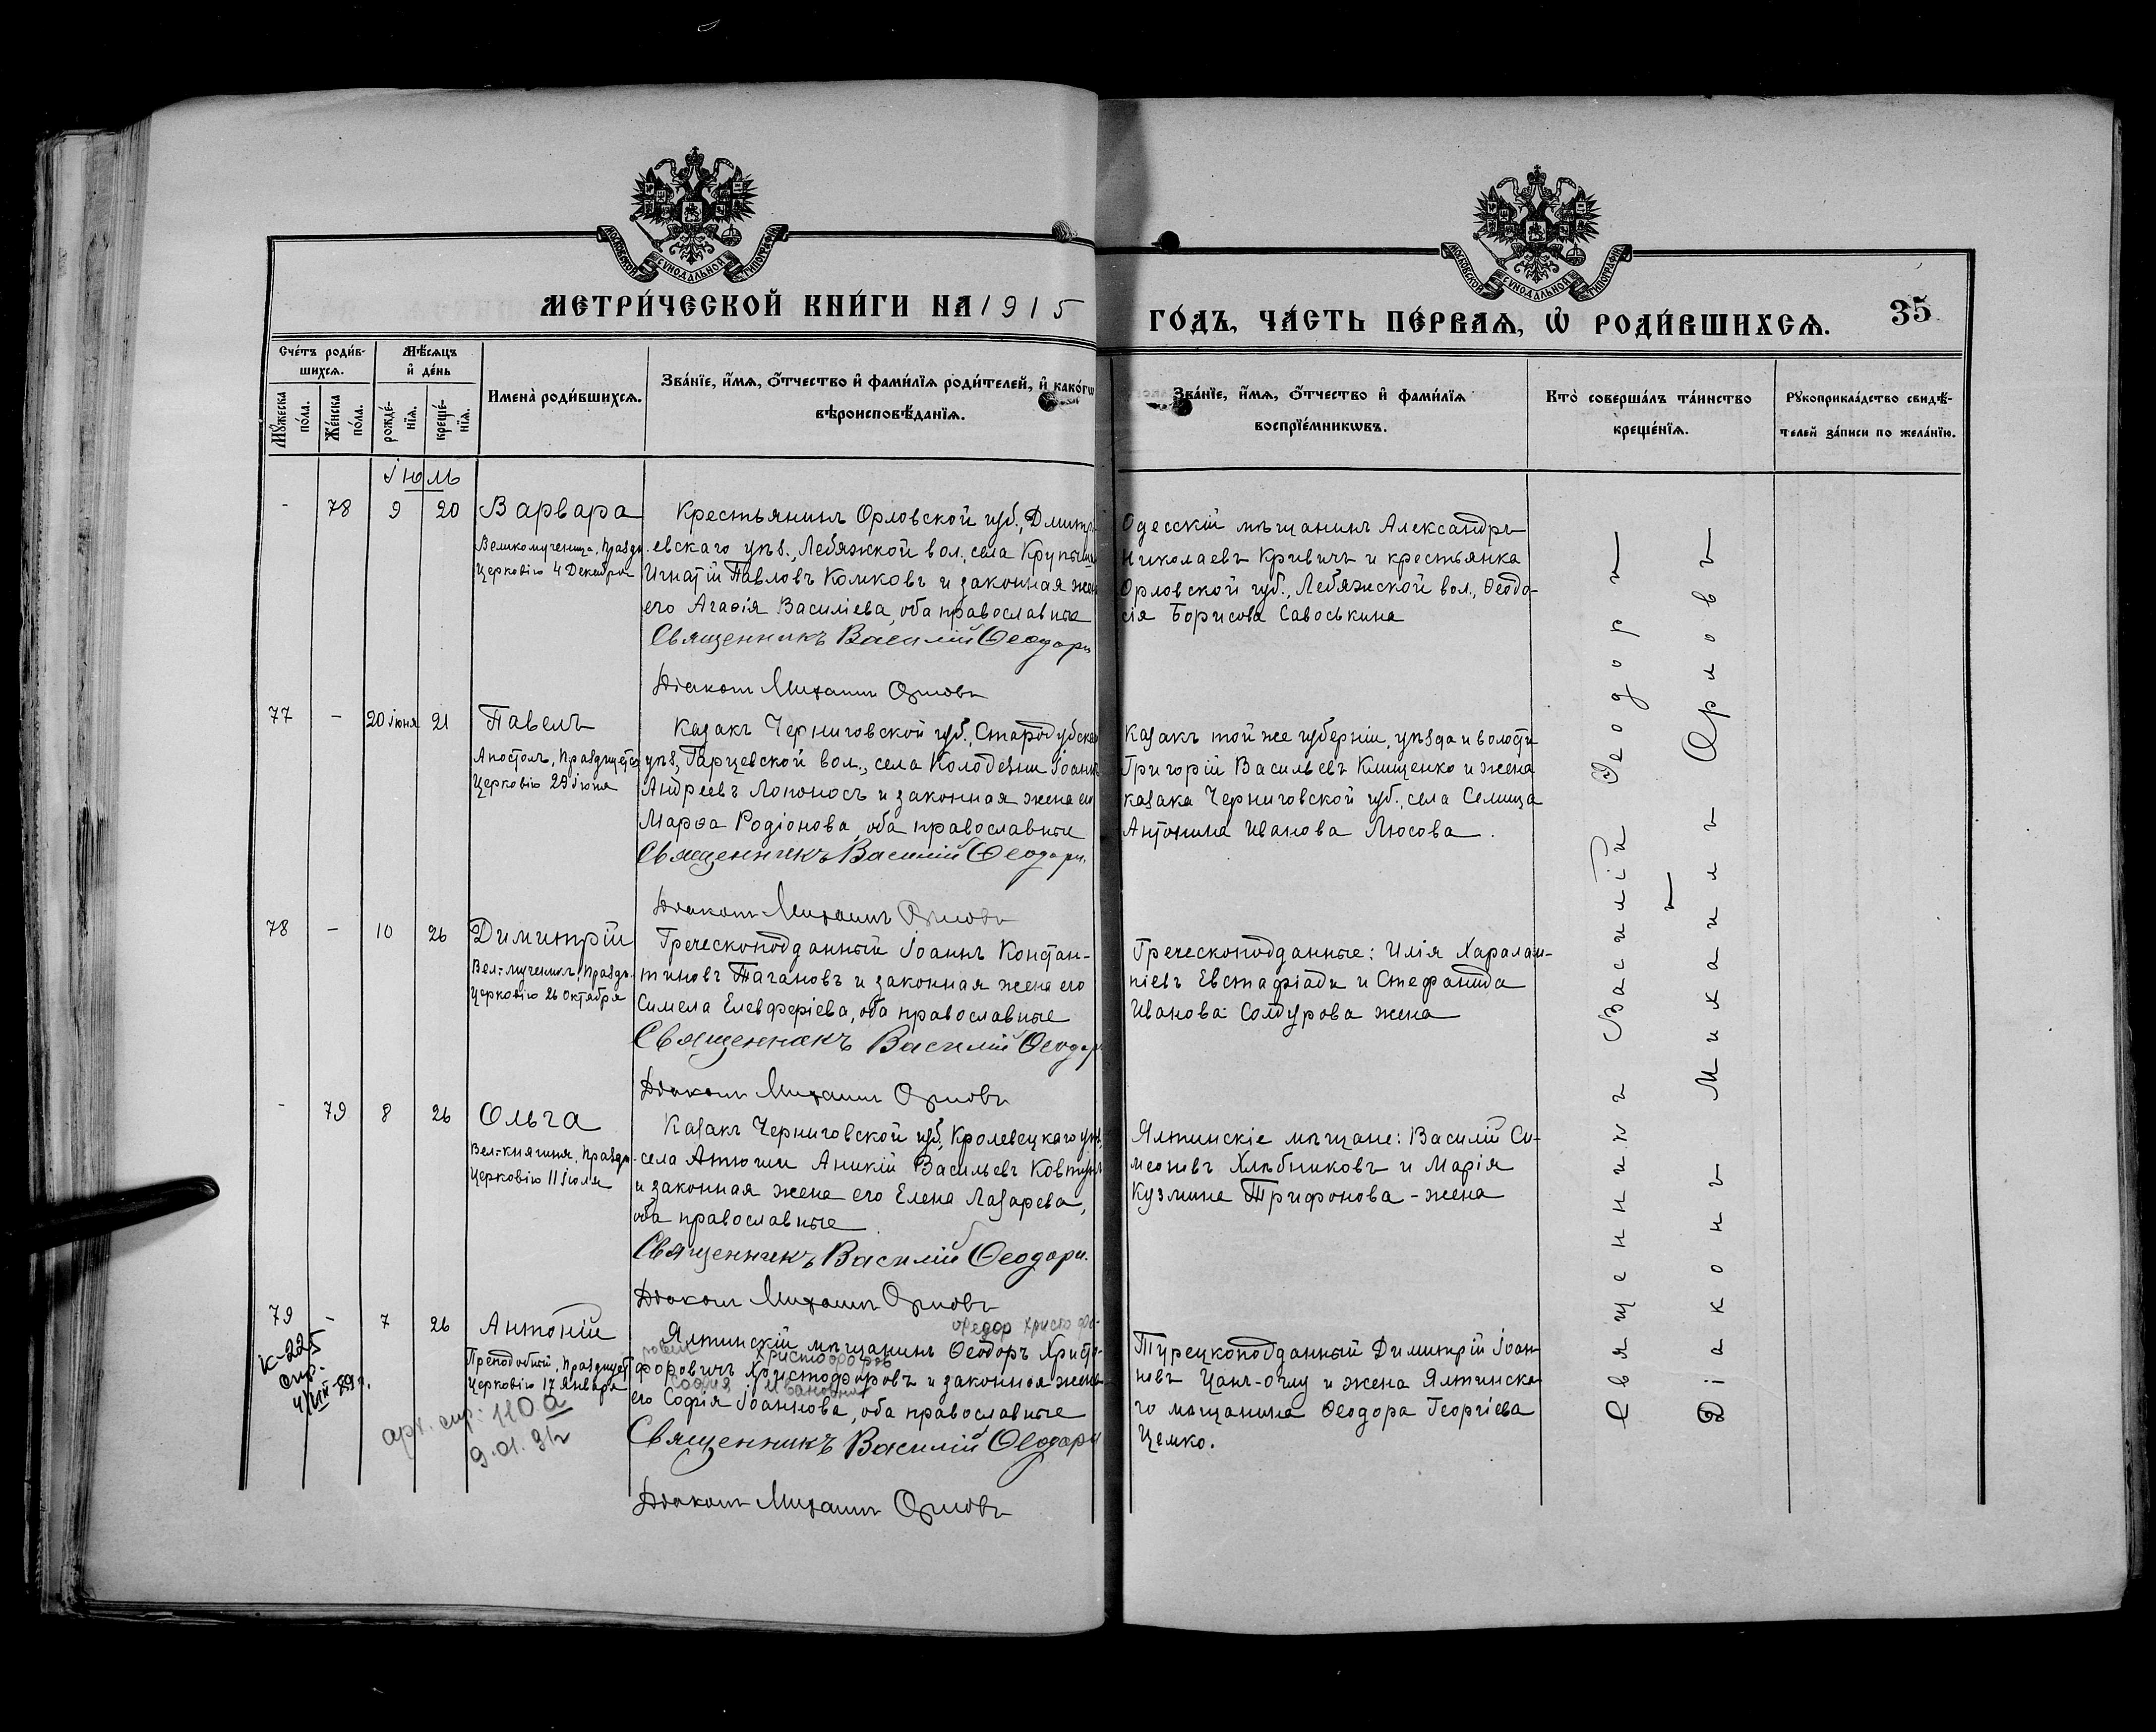 МОСКОВСКОЙ СѴНОДАЛЬНОЙ ТИПОГРАФІИ
МОСКОВСКОЙ СѴНОДАЛЬНОЙ ТИПОГРАФІИ
МЕТРИ́ЧЕСКОЙ КНИ́ГИ НА 1915
ГО́ДЪ, ЧА́СТЬ ПЕ́РВАѦ, Ѡ҆ РОДИ́ВШИХСѦ. 35
Сче́тъ роди́в-
шихсѧ.
Мꙋ́жеска по́ла.
Же́нска по́ла.
Мѣ́сѧцъ
и҆ де́нь
рожде́-
нїѧ.
креще́-
нїѧ.
Имена̀ роди́вшихсѧ.
Зва́нїе, и҆́мѧ, ѻ҆́тчество и҆ фами́лїѧ роди́телей, и҆ како́гѡ
вѣроисповѣ́данїѧ.
Зва́нїе, и҆́мѧ, ѻ҆́тчество и҆ фами́лїѧ
воспрїе́мникѡвъ.
Кто̀ соверша́лъ та́инство
креще́нїѧ.
Рꙋкоприкла́дство свидѣ́-
телей за́писи по жела́нїю.
Іюль
- 78 9 20 Варвара
Великомученица, празд.
Церковію 4 Декабря
Крестьянинъ Орловской губ., Дмитрі-
евскаго уѣз., Лебяжской вол., села
Игнатій Павловъ Комковъ и законная жена
его Агаѳія Василіева, оба православные
Священникъ Василій Ѳеодори
Діаконъ Михаилъ Орловъ
Одесскій мѣщанинъ Александръ
Николаевъ Кривичъ и крестьянка
Орловской губ., Лебяжской вол., Ѳеодо-
сія Борисова Савоськина
77 - 20 іюня 21 Павелъ
Апостолъ, празднуется
Церковію 29 іюня
Казакъ Черниговской губ., Стародубскаго
уѣз., Гарцевской вол., села Колодезни Іоаннъ
Андреевъ Лопоносъ и законная жена его
Марѳа Родіонова, оба православные
Священникъ Василій Ѳеодори.
Діаконъ Михаилъ Орловъ
Казакъ той же губерніи, уѣзда и волости
Григорій Васильевъ Клищенко и жена
казака Черниговской губ., села Селища
Антонина Иванова Люсова.
78 - 10 26 Димитрій
Вел.-мученикъ, празд.
Церковію 26 октября
Греческоподданный Іоаннъ Констан-
тиновъ Тагановъ и законная жена его
Симела Елевферіева, оба православные
Священникъ Василій Ѳеодори
Діаконъ Михаилъ Орловъ
Греческоподданные: Илія Харалам-
піевъ Евстафіади и Стефанида
Иванова Солдурова жена
- 79 8 26 Ольга
Вел.-княгиня, празд.
Церковію 11 іюля
Казакъ Черниговской губ., Кролевецкаго уѣз.,
села Атюши Аникій Васильевъ Ковтунъ
и законная жена его Елена Лазарева,
оба православные
Священникъ Василій Ѳеодори.
Діаконъ Михаилъ Орловъ
Ялтинскіе мѣщане: Василій Си-
меоновъ Хлѣбниковъ и Марія
Кузмина Трифонова - жена
79 - 7 26 Антоній
Преподобный, празднует.
Церковію 17 Января
К-225
спр.
4/VIII-89г.
арх. спр: 110а
9.01.91г
Федор Христофо-
Ялтинскій мѣщанинъ Ѳеодоръ Христо-
рович Христофоров
форовичъ Христофоровъ и законная жена
София Ивановна
его Софія Іоаннова, оба православные
Священникъ Василій Ѳеодори
Діаконъ Михаилъ Орловъ
Турецкоподданный Димитрій Іоан-
новъ Цанъ-оглу и жена Ялтинска-
го мѣщанина Ѳеодора Георгіева
Цемко.
Священникъ Василій Ѳеодори
и
Діаконъ Михаилъ Орловъ